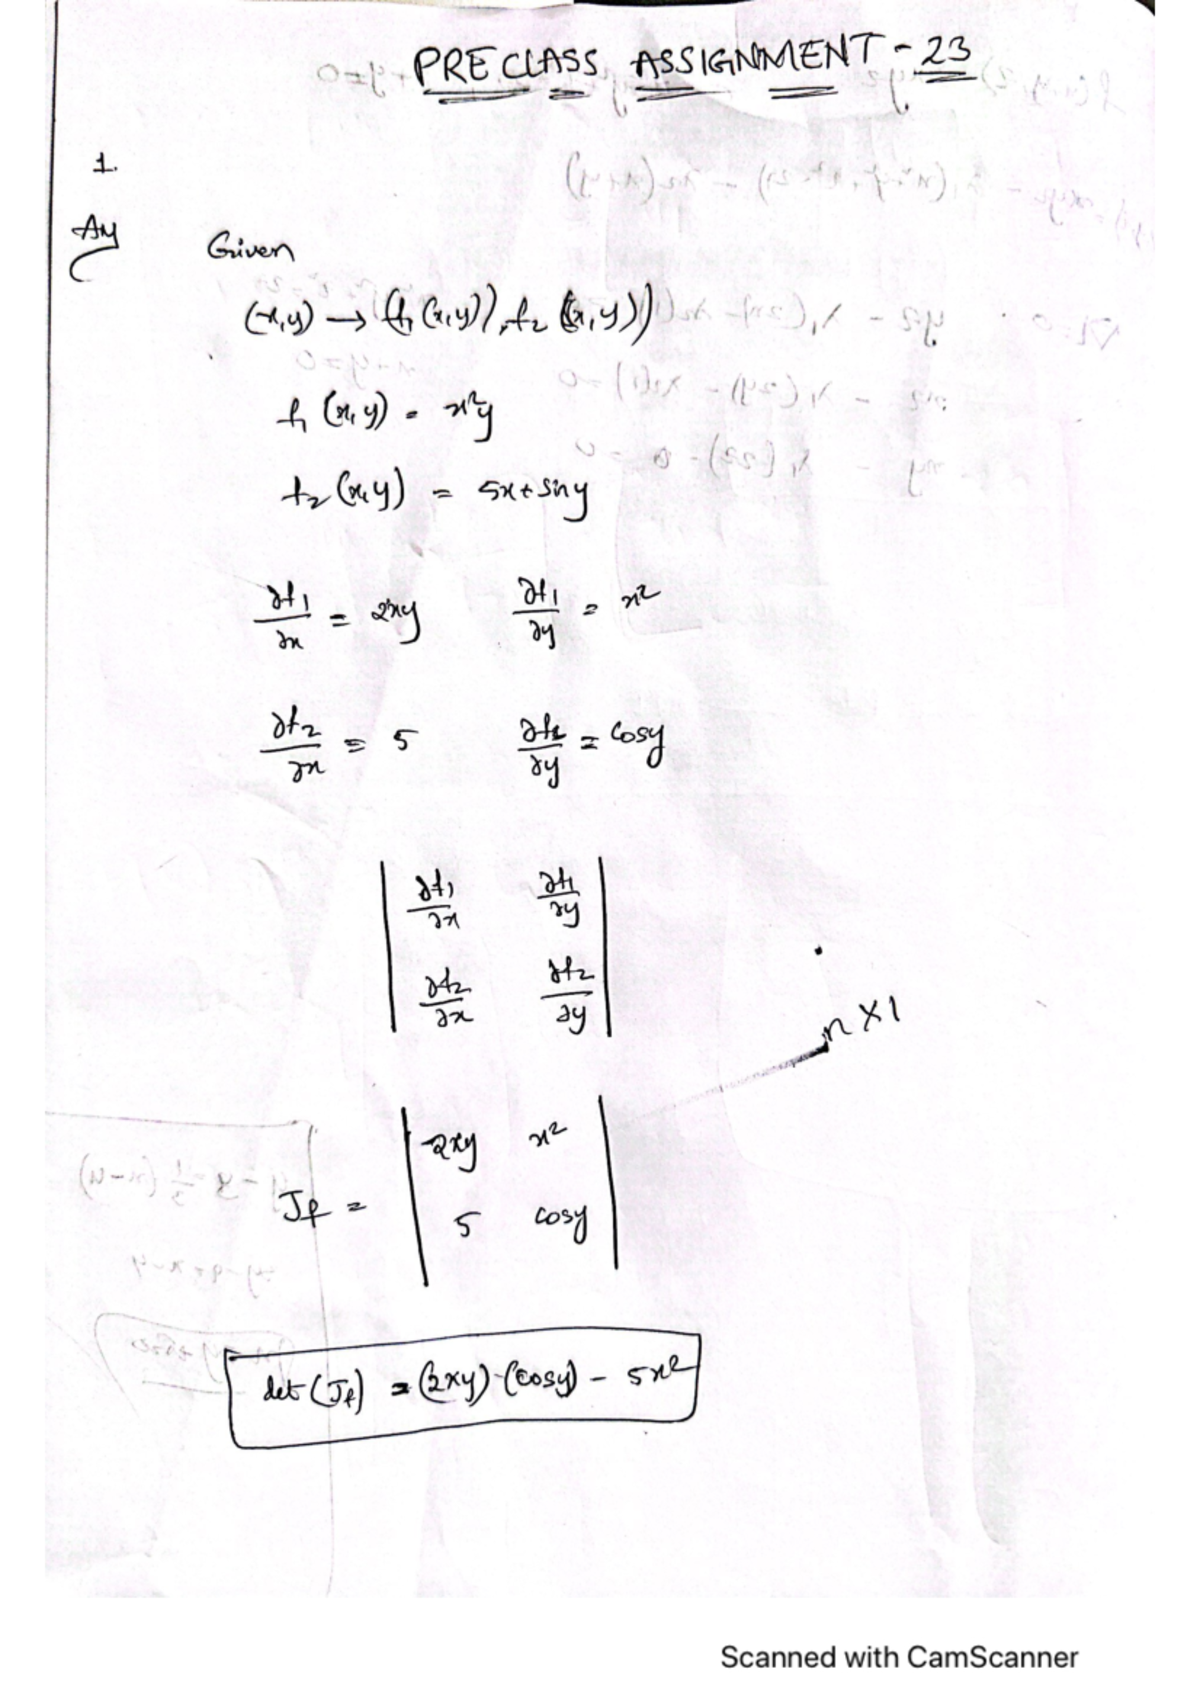 PRECLASS ASSIGNMENT - 23
1.
Given
(x,y) → (f₁(x,y)), f₂ (x,y))
f₁ (x,y) = x²y
f₂ (x,y) = 5x+siny
∂f₁/∂x = 2xy ∂f₁/∂y = x²
∂f₂/∂x = 5 ∂f₂/∂y = cosy
| ∂f₁/∂x ∂f₁/∂y |
| ∂f₂/∂x ∂f₂/∂y |
n×1
Jf = | 2xy x² |
| 5 cosy |
det (Jf) = (2xy)·(cosy) - 5x²
Scanned with CamScanner